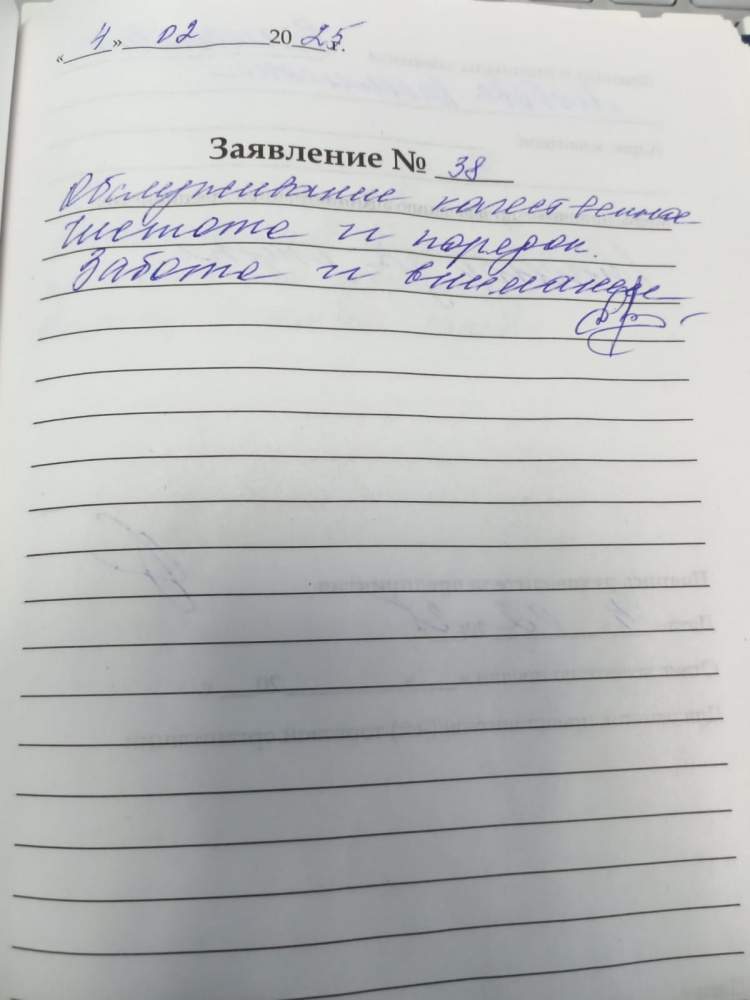 «4» 02 2025 г.
Заявление № 38
Обслуживание качественное
Чистота и порядок.
Забота и внимание